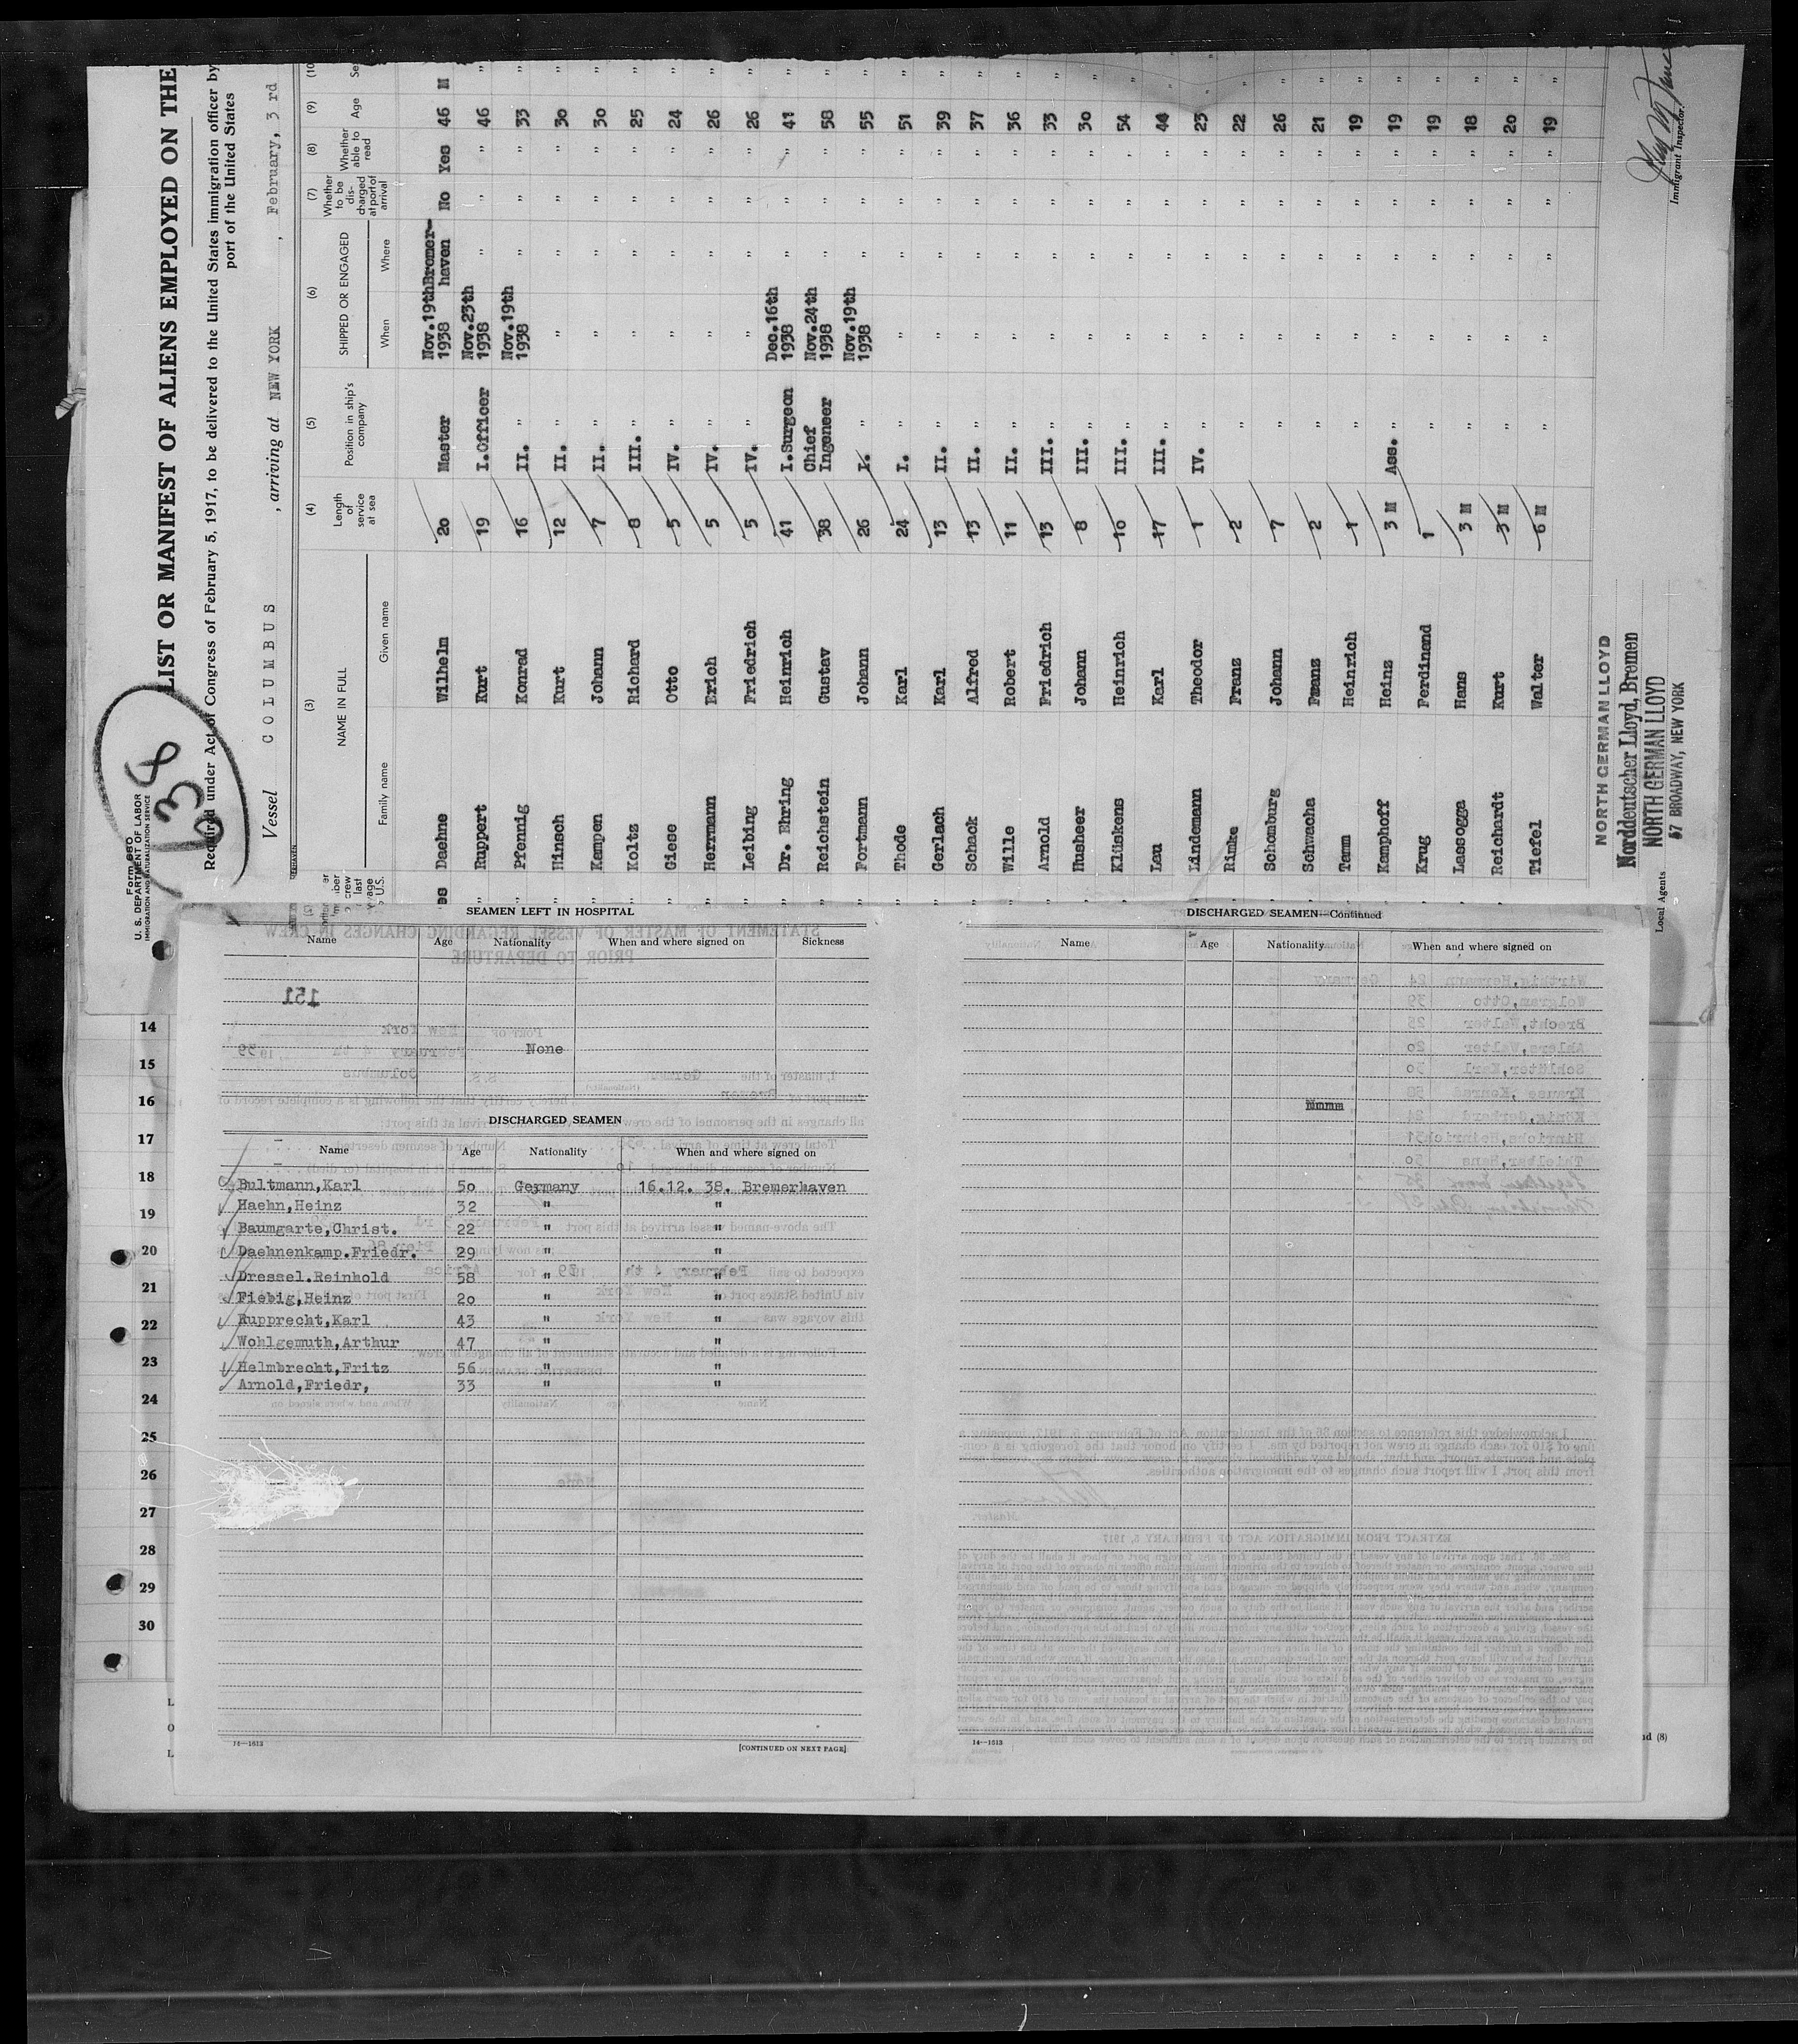 Form 680
U. S. DEPARTMENT OF LABOR
IMMIGRATION AND NATURALIZATION SERVICE
LIST OR MANIFEST OF ALIENS EMPLOYED ON THE
Required under Act of Congress of February 5, 1917, to be delivered to the United States immigration officer by
port of the United States
Vessel COLUMBUS , arriving at NEW YORK , February, 3 rd
(3) (4) (5) (6) (7) (8) (9) (10
NAME IN FULL Length of service at sea Position in ship's company SHIPPED OR ENGAGED Whether to be dis-charged at port of arrival Whether able to read Age Se
Family name Given name When Where
Daehne Wilhelm 20 Master Nov.19th 1938 Bremer-haven No Yes 46 M
" Ruppert Kurt 19 I.Officer Nov.23th 1938 " " " 46 "
" Pfennig Konrad 16 II. " Nov.19th 1938 " " " 33 "
" Hinsch Kurt 12 II. " " " " " 30 "
" Kampen Johann 7 II. " " " " " 30 "
" Koltz Richard 8 III. " " " " " 25 "
" Giese Otto 5 IV. " " " " " 24 "
" Herrmann Erich 5 IV. " " " " " 26 "
" Leibing Friedrich 5 IV. " " " " " 26 "
" Dr. Ehring Heinrich 41 I.Surgeon Dec.16th 1938 " " " 41 "
" Reichstein Gustav 38 Chief Ingeneer Nov.24th 1938 " " " 58 "
" Fortmann Johann 26 I. " Nov.19th 1938 " " " 55 "
" Thode Karl 24 I. " " " " " 51 "
" Gerlach Karl 13 II. " " " " " 39 "
" Schack Alfred 13 II. " " " " " 37 "
" Wille Robert 11 II. " " " " " 36 "
" Arnold Friedrich 13 III. " " " " " 33 "
" Husheer Johann 8 III. " " " " " 30 "
" Klüskens Heinrich 10 III. " " " " " 54 "
" Lau Karl 17 III. " " " " " 44 "
" Lindemann Theodor 1 IV. " " " " " 23 "
" Rinke Franz 2 " " " " " 22 "
" Schomburg Johann 7 " " " " " 26 "
" Schwacha Franz 2 " " " " " 21 "
" Tamm Heinrich 1 " " " " " 19 "
" Kamphoff Heinz 3 M Ass. " " " " " 19 "
" Krug Ferdinand 1 " " " " " 19 "
" Lassogga Hans 3 M " " " " " 18 "
" Reichardt Kurt 3 M " " " " " 20 "
Tiefel Walter 6 M " " " " " 19 "
NORTH GERMAN LLOYD
Norddeutscher Lloyd, Bremen
Local Agents NORTH GERMAN LLOYD
57 BROADWAY, NEW YORK
Immigrant Inspector.
14
15
16
17
18
19
20
21
22
23
24
25
26
27
28
29
30
SEAMEN LEFT IN HOSPITAL
Name Age Nationality When and where signed on Sickness
None
DISCHARGED SEAMEN
Name Age Nationality When and where signed on
Bultmann,Karl 50 Germany 16.12. 38. Bremerhaven
Haehn,Heinz 32 " "
Baumgarte,Christ. 22 " "
Daehnenkamp.Friedr. 29 " "
Dressel.Reinhold 58 " "
Fiebig,Heinz 20 " "
Rupprecht,Karl 43 " "
Wohlgemuth,Arthur 47 " "
Helmbrecht,Fritz 56 " "
Arnold,Friedr, 33 " "
14—1613
[CONTINUED ON NEXT PAGE]
DISCHARGED SEAMEN—Continued
Name Age Nationality When and where signed on
14—1613
nd (8)